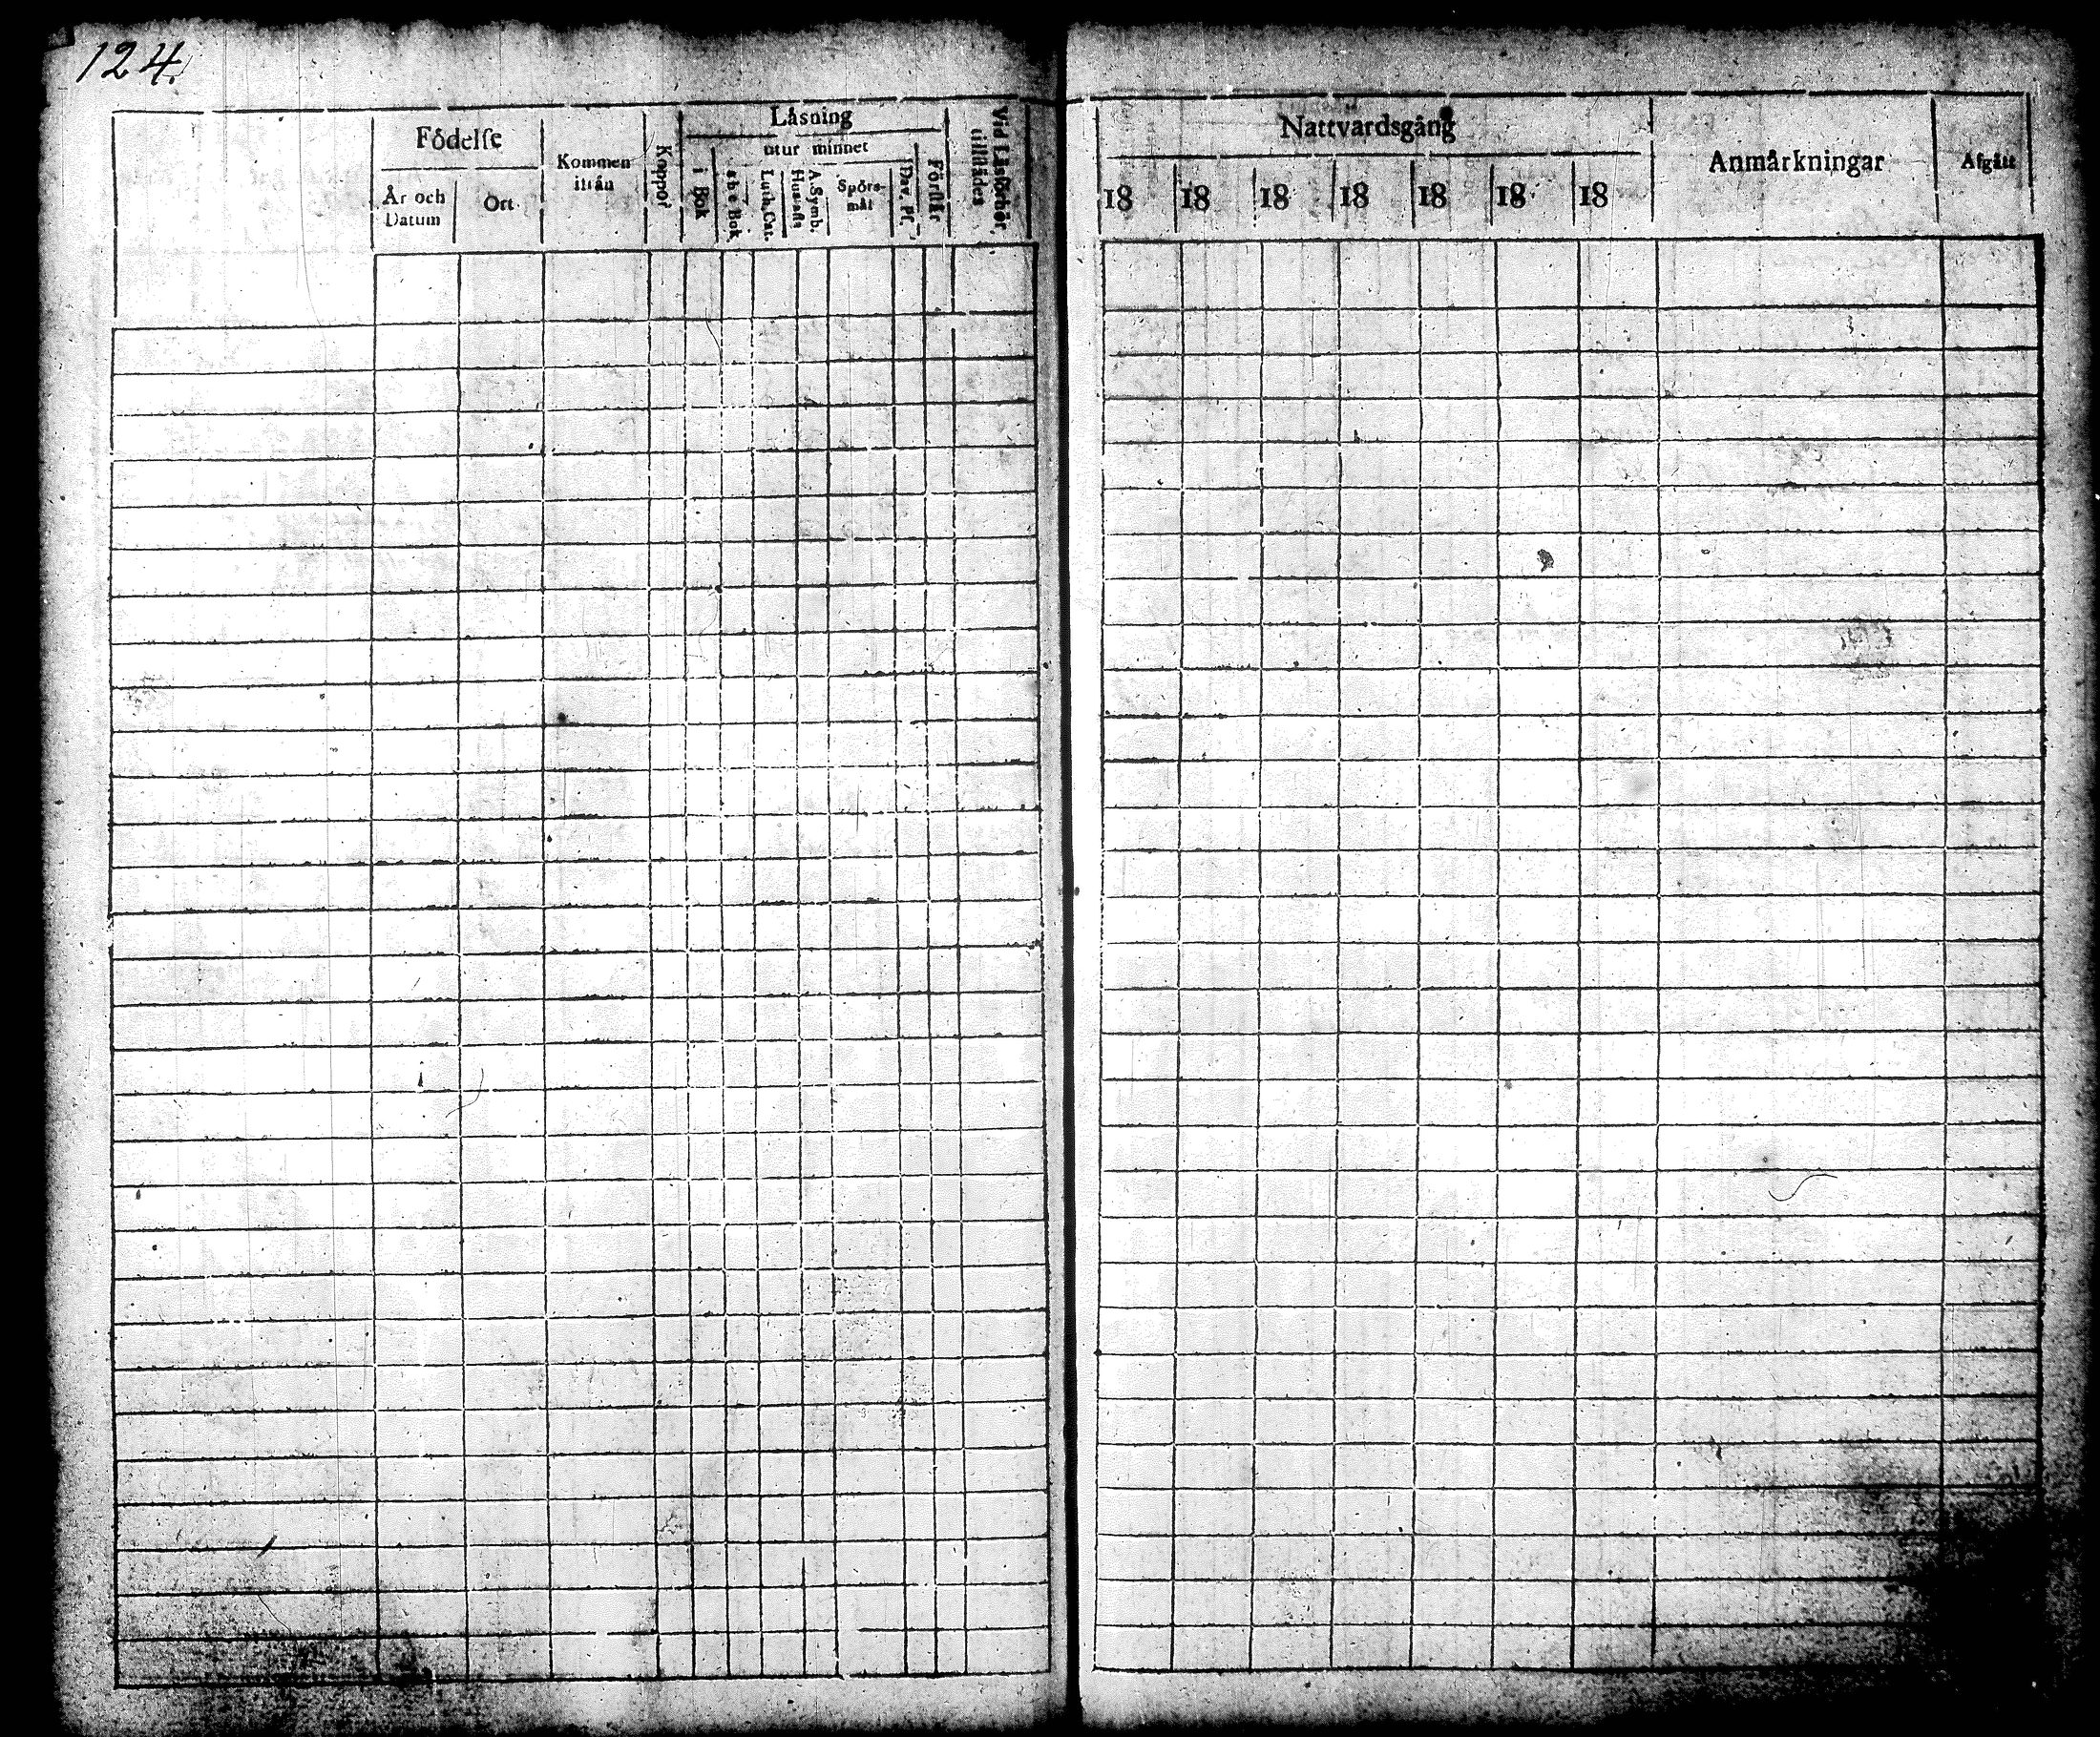 124.
Födelse
År och
Datum
Ort
Kommen
ifrån
Koppor
Läsning
i Bok
utur minnet
a b c Bok
Luth. Cat.
Hustafla
A. Symb.
Spörs-
mål
Dav. Ps.
Förstår
Vid Läsförhör,
tillstädes
Nattvardsgång
18 18 18 18 18 18 18
Anmärkningar
Afgått